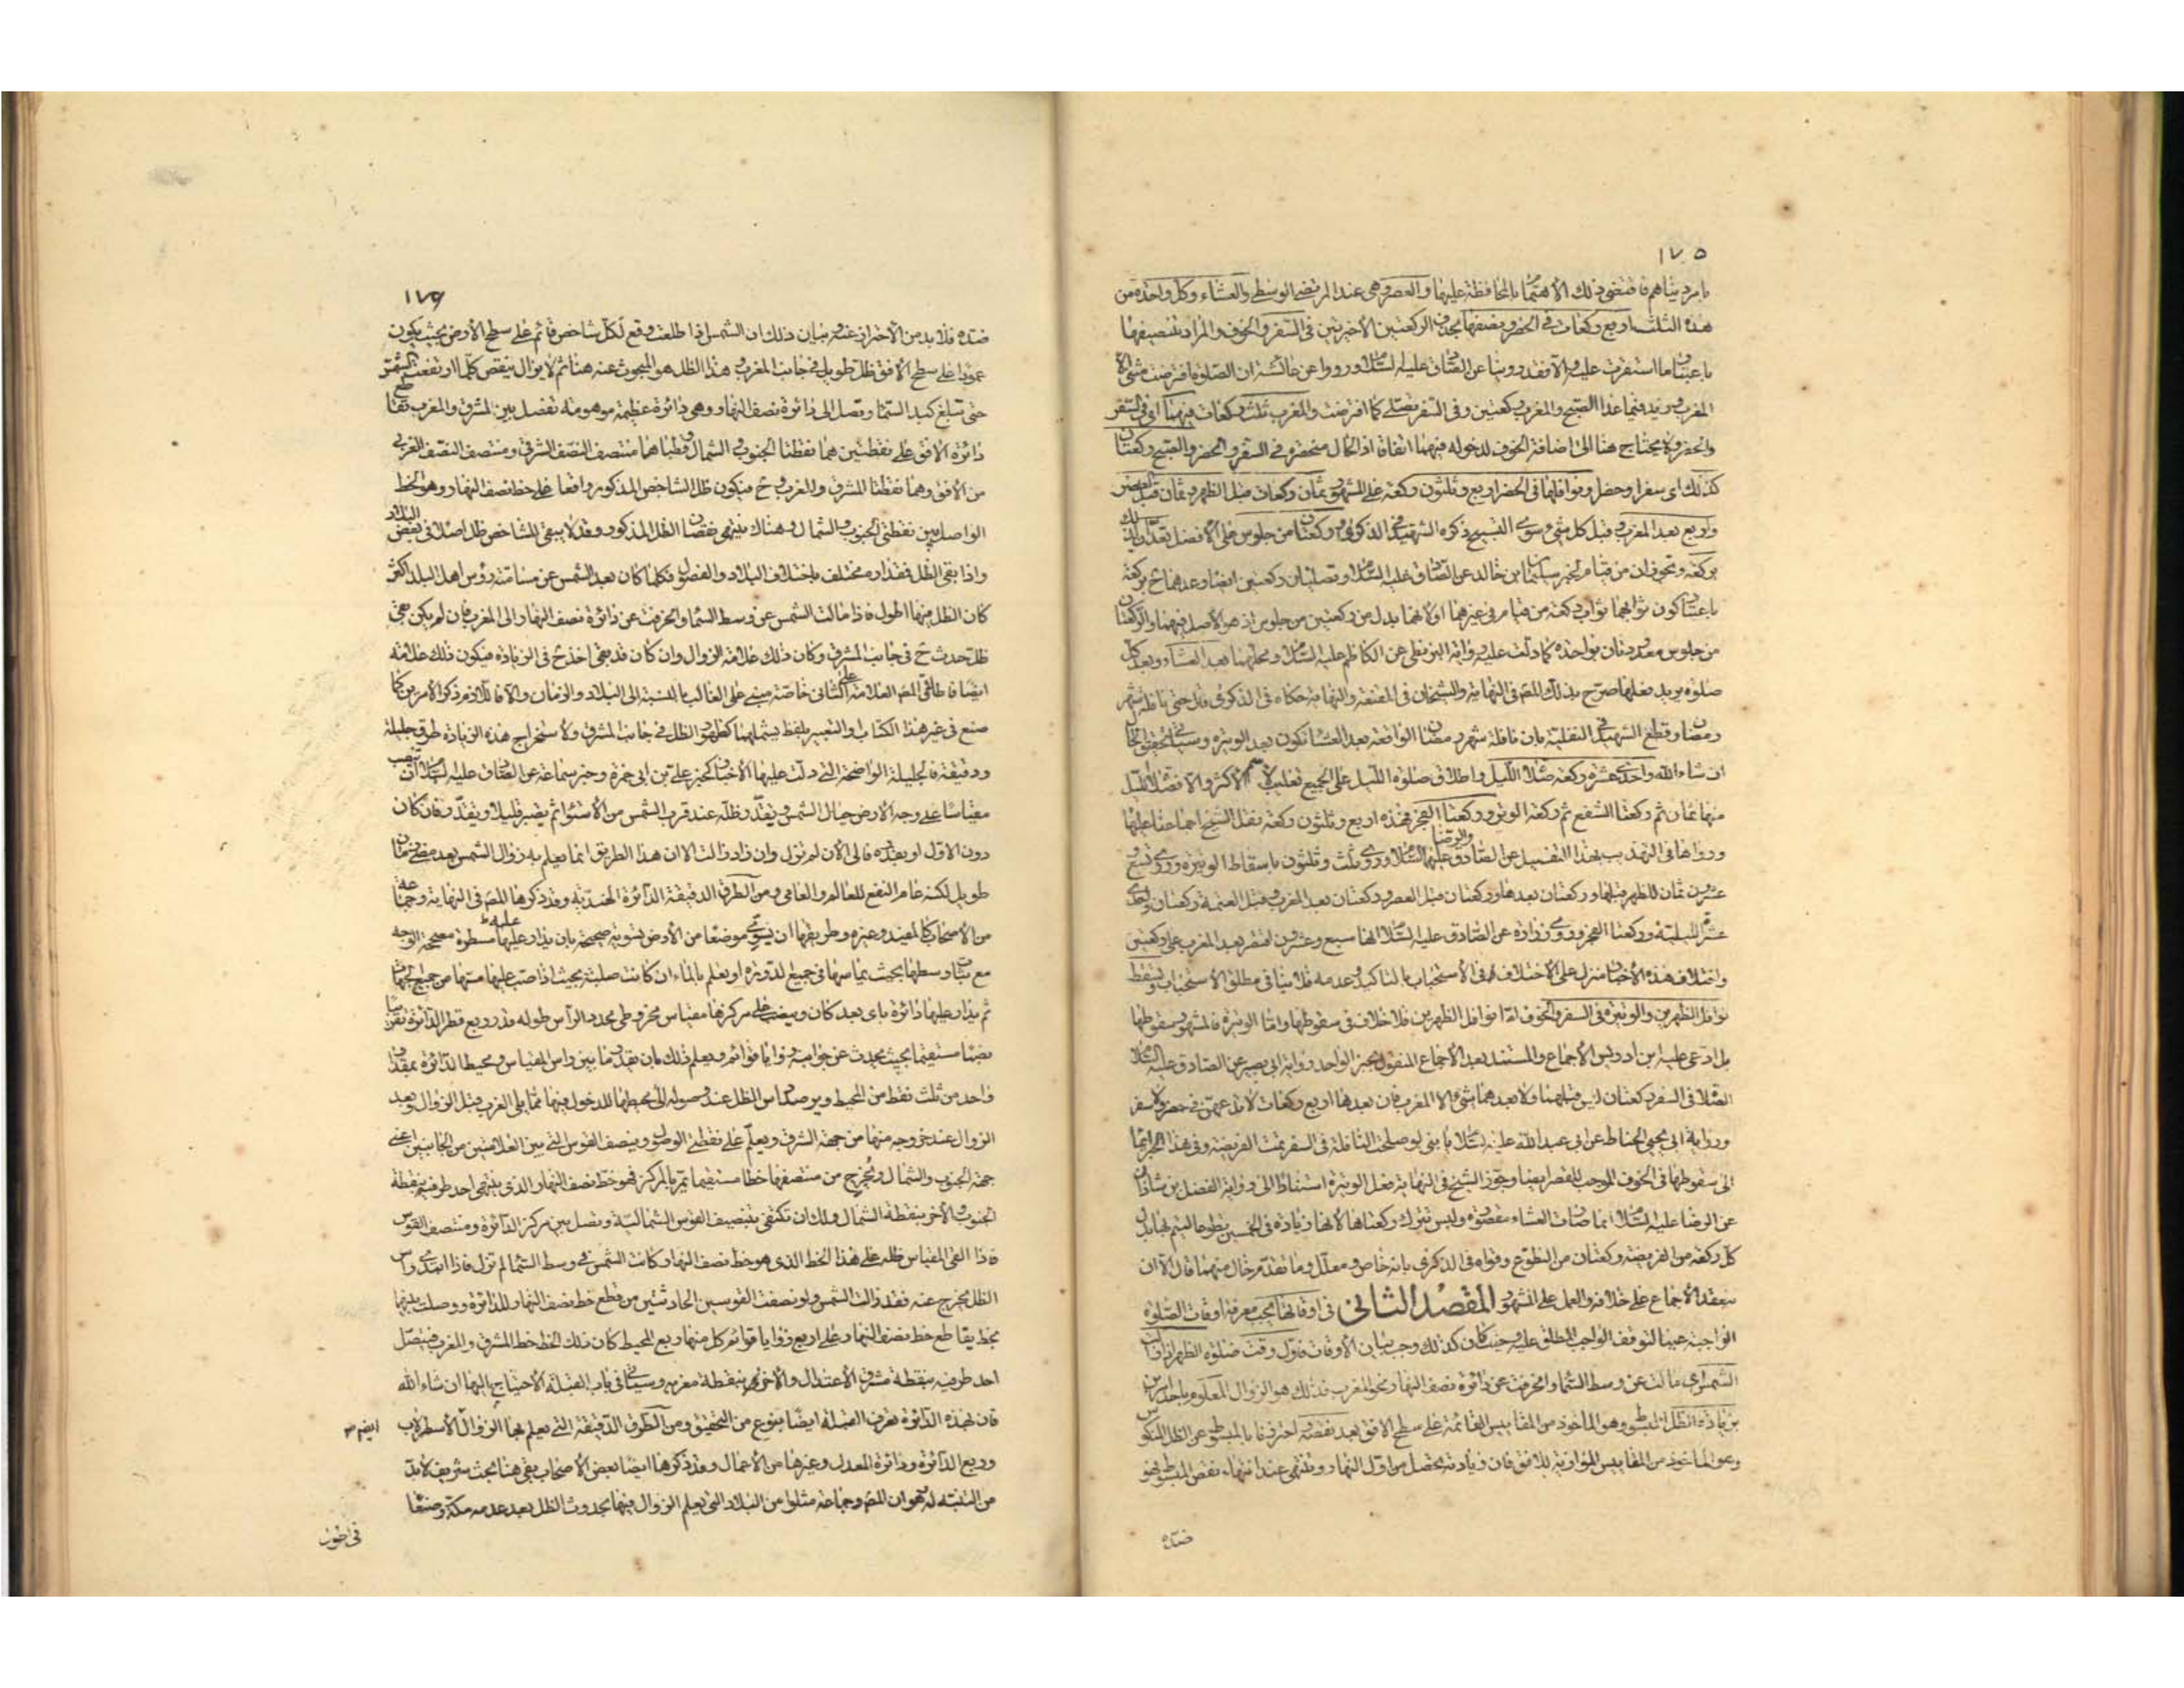 ١٧٥
بامر دنياهم فاقتضى ذلك الاهتمام بالمحافظة عليها والعصر وهى عند المرتضى الوسطى والعشاء وكل واحدة من
هذه الثلث اربع ركعات فى الحضر ونصفها بحذف الركعتين الاخيرتين فى السفر والخوف والمراد بتنصيفها
باعتبار ما استقرت عليه والا فقد روينا عن الصادق عليه السلام ورووا عن عائشة ان الصلوة افترضت مثنى الا
المغرب فزيد فيما عدا الصبح والمغرب ركعتين وفى السفر تصلى كما افترضت والمغرب ثلث ركعات فيهما اى فى السفر
والحضر ولا يحتاج هنا الى اضافة الخوف لدخوله فيهما اتفاقا اذ الحال منحصرة فى السفر والحضر والصبح ركعتان
كذلك اى سفرا وحضرا ونوافلها فى الحضر اربع وثلثون ركعة على المشهور ثمان ركعات قبل الظهر وثمان قبل العصر
واربع بعد المغرب وقبل كل شئ سوى التسبيح ذكره الشهيد فى الذكرى وركعتان من جلوس على الافضل تعدان
بركعة ويجوزان من قيام لخبر سليمان بن خالد عن الصادق عليه السلام وتصليان ركعتين ايضا وعدهما ح بركعة
باعتبار كون ثوابهما ثواب ركعة من قيام فى غيرهما او لانهما بدل من ركعتين من جلوس اذ هو الاصل فيهما والركعتان
من جلوس معدودتان بواحدة كما دلت عليه رواية البزنطى عن الكاظم عليه السلام ومحلهما بعد العشاء وبعد كل
صلوة يريد فعلها صرح بذلك المصم فى النهاية والشيخان فى المقنعة والنهاية حكاه فى الذكرى قال حتى نافلة شهر
رمضان وقطع الشهيد فى النفلية بان نافلة شهر رمضان الواقعة بعد العشا تكون بعد الوتيرة وسياتى تحقيق الحال
ان شاء الله واحدى عشرة ركعة صلاة الليل واطلاق صلوة الليل على الجميع تغليب لاسم الاكثر والا فصلاة الليل
منها ثمان ثم ركعتا الشفع ثم ركعة الوتر وركعتا الفجر فهذه اربع وثلثون ركعة نقل الشيخ اجماعنا عليها
ورواها فى التهذيب بهذا التفصيل عن الصادق والرضا عليهما السلام وروى ثلث وثلثون باسقاط الوتيرة وروى تسع
عشرون ثمان للظهر قبلها وركعتان بعدها وركعتان قبل العصر وركعتان بعد المغرب وقبل العتمة ركعتان واحدى
عشرة لليلية وركعتا الفجر وروى زرارة عن الصادق عليه السلام انها سبع وعشرون اقتصر بعد المغرب على ركعتين
واختلاف هذه الاخبار منزل على الاختلاف فى الاستحباب بالتاكيد وعدمه فلا ينافى مطلق الاستحباب وتسقط
نوافل الظهرين والوتيرة فى السفر والخوف اما نوافل الظهرين فلا خلاف فى سقوطها واما الوتيرة فالمشهور سقوطها
بل ادعى عليه ابن ادريس الاجماع والمستند بعد الاجماع المنقول بخبر الواحد رواية ابى بصير عن الصادق عليه السلام
الصلاة فى السفر ركعتان ليس قبلهما ولا بعدهما شئ الا المغرب فان بعدها اربع ركعات لا تدعهن فى حضر ولا سفر
ورواية ابى يحيى الحناط عن ابى عبد الله عليه السلام يا بنى لو صلحت النافلة فى السفر تمت الفريضة وفى هذا الخبر ايماء
الى سقوطها فى الخوف الموجب للقصر ايضا وجوز الشيخ فى النهاية فعل الوتيرة استنادا الى رواية الفضل بن شاذان
عن الرضا عليه السلام انما صارت العشاء مقصورة وليس تترك ركعتاها لانها زيادة فى الخمسين تطوعا ليتم بهما بدل
كل ركعة من الفريضة ركعتان من التطوع وقواه فى الذكرى بانه خاص ومعلل وما تقدم خال منهما قال الا ان
ينعقد الاجماع على خلافه والعمل على المشهور المقصد الثانى فى اوقاتها يجب معرفة اوقات الصلوة
الواجبة عينا لتوقف الواجب المطلق عليه وحيث كان كذلك وجب بيان الاوقات فاول وقت صلوة الظهر اذا زالت
الشمس اى مالت عن وسط السما وانحرفت عن دائرة نصف النهار نحو المغرب فذلك هو الزوال المعلوم باحد امرين
بزيادة الظل المبسوط وهو الماخوذ من المقاييس القائمة على سطح الافق بعد نقصه احترز بالمبسوط عن الظل المنكوس
وهو الماخوذ من المقاييس الموازية للافق فان زيادته تحصل من اول النهار وتنتهى عند انتهاء نقص المبسوط فهو
ضده
١٧٦
ضده فلا بد من الاحتراز عنه وبيان ذلك ان الشمس اذا طلعت وقع لكل شاخص قائم على سطح الارض بحيث يكون
عمودا على سطح الافق ظل طويل فى جانب المغرب هذا الظل هو المبحوث عنه هنا ثم لا يزال ينقص كلما ارتفعت الشمس
حتى تبلغ كبد السما وتصل الى دائرة نصف النهار وهى دائرة عظيمة موهومة تفصل بين المشرق والمغرب تقاطع
دائرة الافق على نقطتين هما نقطتا الجنوب والشمال وقطباها منتصف النصف الشرقى ومنتصف النصف الغربى
من الافق وهما نقطتا المشرق والمغرب وح فيكون ظل الشاخص المذكور واقعا على خط نصف النهار وهو الخط
الواصل بين نقطتى الجنوب والشمال وهناك ينتهى نقصان الظل المذكور وقد لا يبقى للشاخص ظل اصلا فى بعض البلاد
واذا بقى الظل فمقداره مختلف باختلاف البلاد والفصول فكلما كان بعد الشمس عن مسامتة رؤس اهل البلد اكثر
كان الظل فيها اطول فاذا مالت الشمس عن وسط السما وانحرفت عن دائرة نصف النهار الى المغرب فان لم يكن بقى
ظل حدث ح فى جانب المشرق وكان ذلك علامة الزوال وان كان قد بقى اخذ ح فى الزيادة فيكون ذلك علامة
ايضا فاطلاق المصم العلامة على الثانى خاصة مبنى على الغالب بالنسبة الى البلاد والزمان والا فاللازم ذكر الامرين كما
صنع فى غير هذا الكتاب والتعبير بلفظ يشملهما كظهور الظل فى جانب المشرق ولاستخراج هذه الزيادة طرق جليلة
ودقيقة فالجليلة الواضحة التى دلت عليها الاخبار كخبر على بن ابى حمزة وخبر سماعة عن الصادق عليه السلام ان تنصب
مقياسا على وجه الارض حيال الشمس ويقدر ظله عند قرب الشمس من الاستواء ثم يصبر قليلا ويقدر فان كان
دون الاول او بقدره فالى الآن لم تزل وان زاد زالت الا ان هذا الطريق انما يعلم به زوال الشمس بعد مضى زمان
طويل لكنه عام النفع للعالم والعامى ومن الطرق الدقيقة الدائرة الهندية وقد ذكرها المصم فى النهاية وجماعة
من الاصحاب كالمفيد وغيره وطريقها ان يسوى موضعا من الارض تسوية صحيحة بان يدار عليها مسطرة مصححة الوجه
مع ثبات وسطها بحيث يماسها فى جميع الدورة او يعلم بالماء ان كانت صلبة بحيث اذا صب عليها سال من جميع الجهات
ثم يدار عليها دائرة باى بعد كان وينصب على مركزها مقياس مخروطى محدد الرأس طوله قدر ربع قطر الدائرة تقريبا
نصبا مستقيما بحيث يحدث عن جوانبه زوايا قوائم ويعلم ذلك بان يقدر ما بين راس المقياس ومحيط الدائرة بمقدار
واحد من ثلث نقط من المحيط ويرصد راس الظل عند وصوله الى محيطها للدخول فيها مما يلى الغرب قبل الزوال وبعد
الزوال عند خروجه منها من جهة الشرق ويعلم على نقطتى الوصول وينصف القوس التى بين العلامتين من الجانبين اعنى
جهة الجنوب والشمال ويخرج من منتصفها خطا مستقيما يمر بالمركز فهو خط نصف النهار الذى ينتهى احد طرفيه بنقطة
الجنوب والآخر بنقطة الشمال ولك ان تكتفى بتنصيف القوس الشمالية وتصل بين مركز الدائرة ومنتصف القوس
فاذا القى المقياس ظله على هذا الخط الذى هو خط نصف النهار كانت الشمس فى وسط السما لم تزل فاذا ابتدى راس
الظل يخرج عنه فقد زالت الشمس ولو نصفت القوسين الحادثتين من قطع خط نصف النهار للدائرة ووصلت بينهما
بخط يقاطع خط نصف النهار على اربع زوايا قوائم كل منها ربع المحيط كان ذلك الخط خط المشرق والمغرب فيتصل
احد طرفيه بنقطة مشرق الاعتدال والآخر بنقطة مغربه وسياتى فى باب القبلة الاحتياج اليها ان شاء الله
فان بهذه الدائرة تعرف القبلة ايضا بنوع من التحقيق ومن الطرق الدقيقة التى يعلم بها الزوال الاسطرلاب
وربع الدائرة ودائرة المعدل وغيرها من الاعمال وقد ذكرها ايضا بعض الاصحاب بقى هنا بحث شريف لا بد
من التنبه له وهو ان المصم وجماعة مثلوا من البلاد التى يعلم الزوال فيها بحدوث الظل بعد عدمه مكة وصنعا